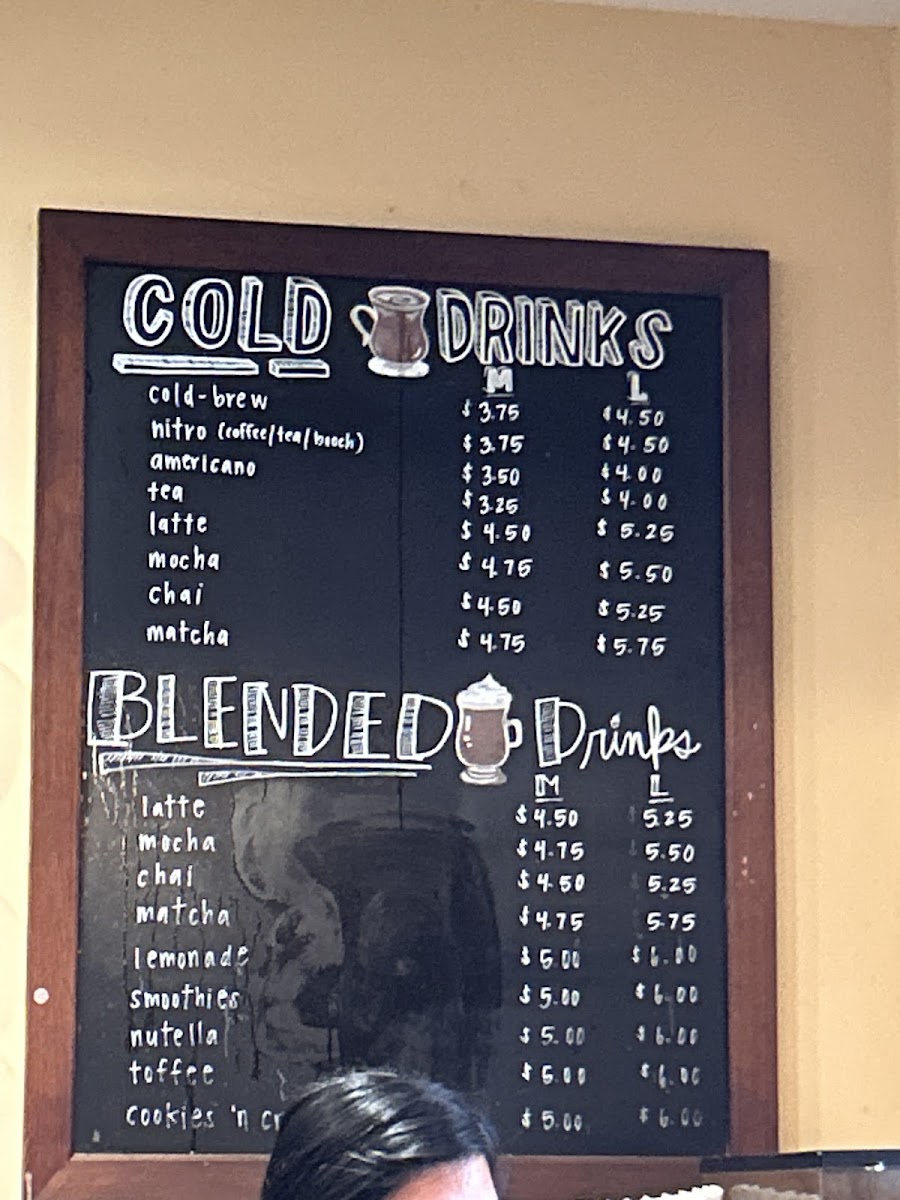 COLD DRINKS
M L
cold-brew $3.75 $4.50
nitro (coffee/tea/booch) $3.75 $4.50
americano $3.50 $4.00
tea $3.25 $4.00
latte $4.50 $5.25
mocha $4.75 $5.50
chai $4.50 $5.25
matcha $4.75 $5.75
BLENDED Drinks
M L
latte $4.50 5.25
mocha $4.75 5.50
chai $4.50 5.25
matcha $4.75 5.75
lemonade $5.00 $6.00
smoothies $5.00 $6.00
nutella $5.00 $6.00
toffee $5.00 $6.00
cookies 'n $5.00 $6.00